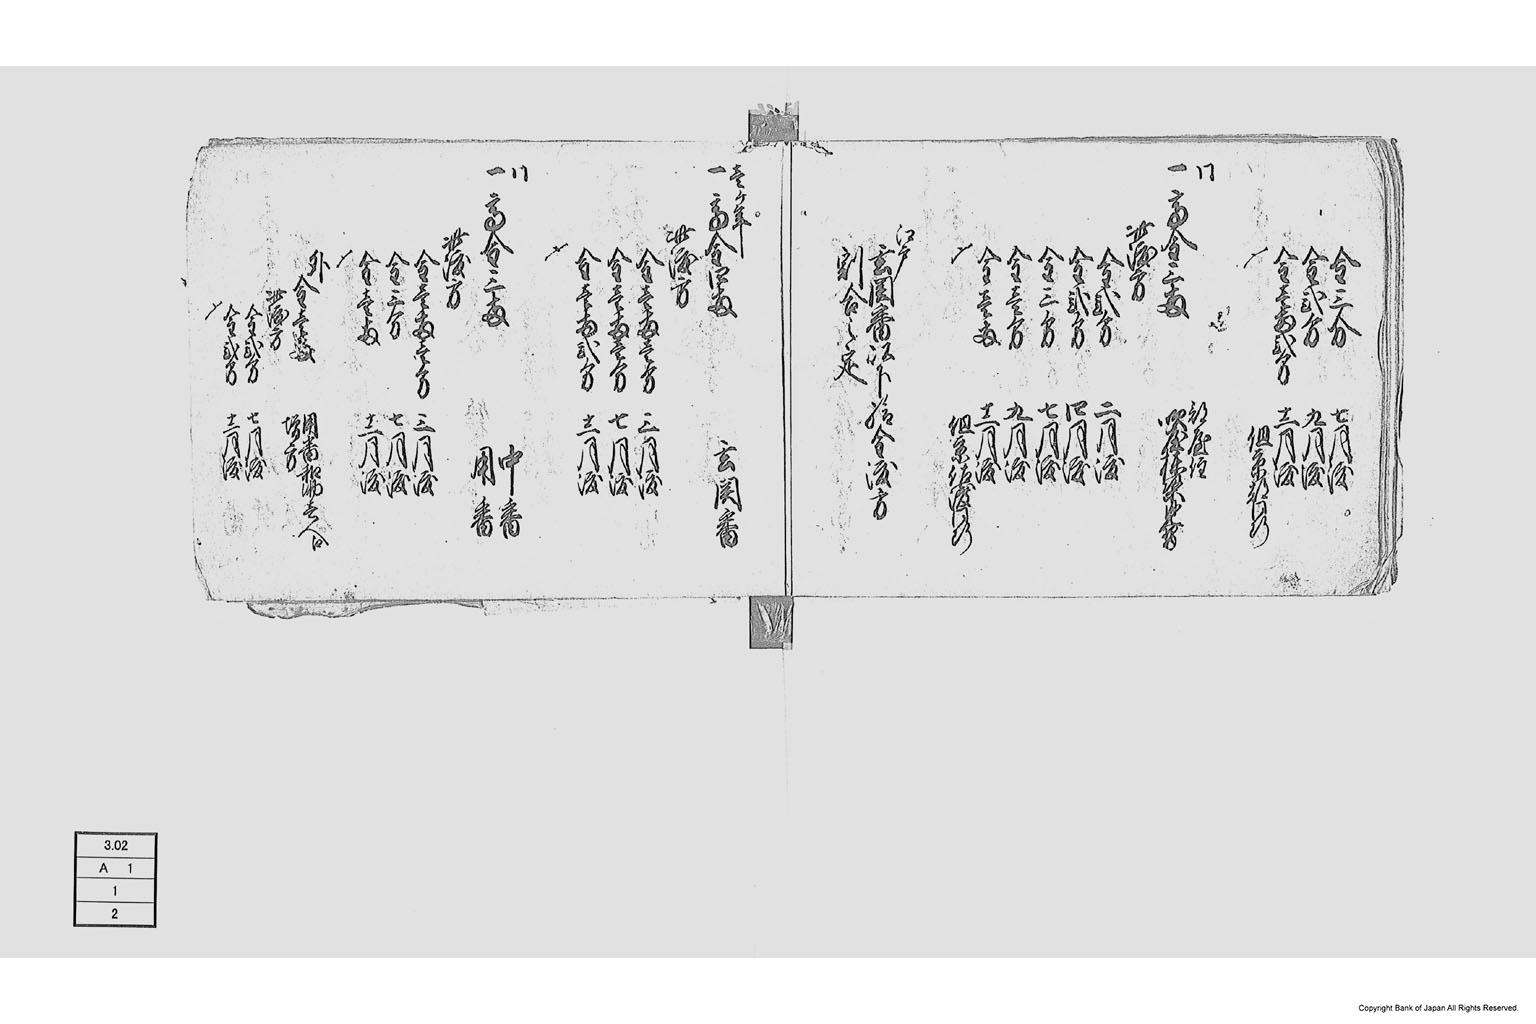 金三分 七月渡
金弐分 九月渡
金壱両弐分 十二月渡
同
一高金三両
此渡方
金弐分 二月渡
金弐分 四月渡
金三分 七月渡
金壱分 九月渡
金壱両 十二月渡
江戸
玄関番以下給金渡方
割合之定
壱ヶ年
一高金四両 玄関番
此渡方
金壱両壱分 三月渡
金壱両壱分 七月渡
金壱両弐分 十二月渡
同
一高金三両 中番
用番
此渡方
金壱両壱分 三月渡
金三分 七月渡
金壱両 十二月渡
外
金壱両
此渡方
金弐分 七月渡
金弐分 十二月渡
3.02
A 1
1
2
Copyright Bank of Japan All Rights Reserved.